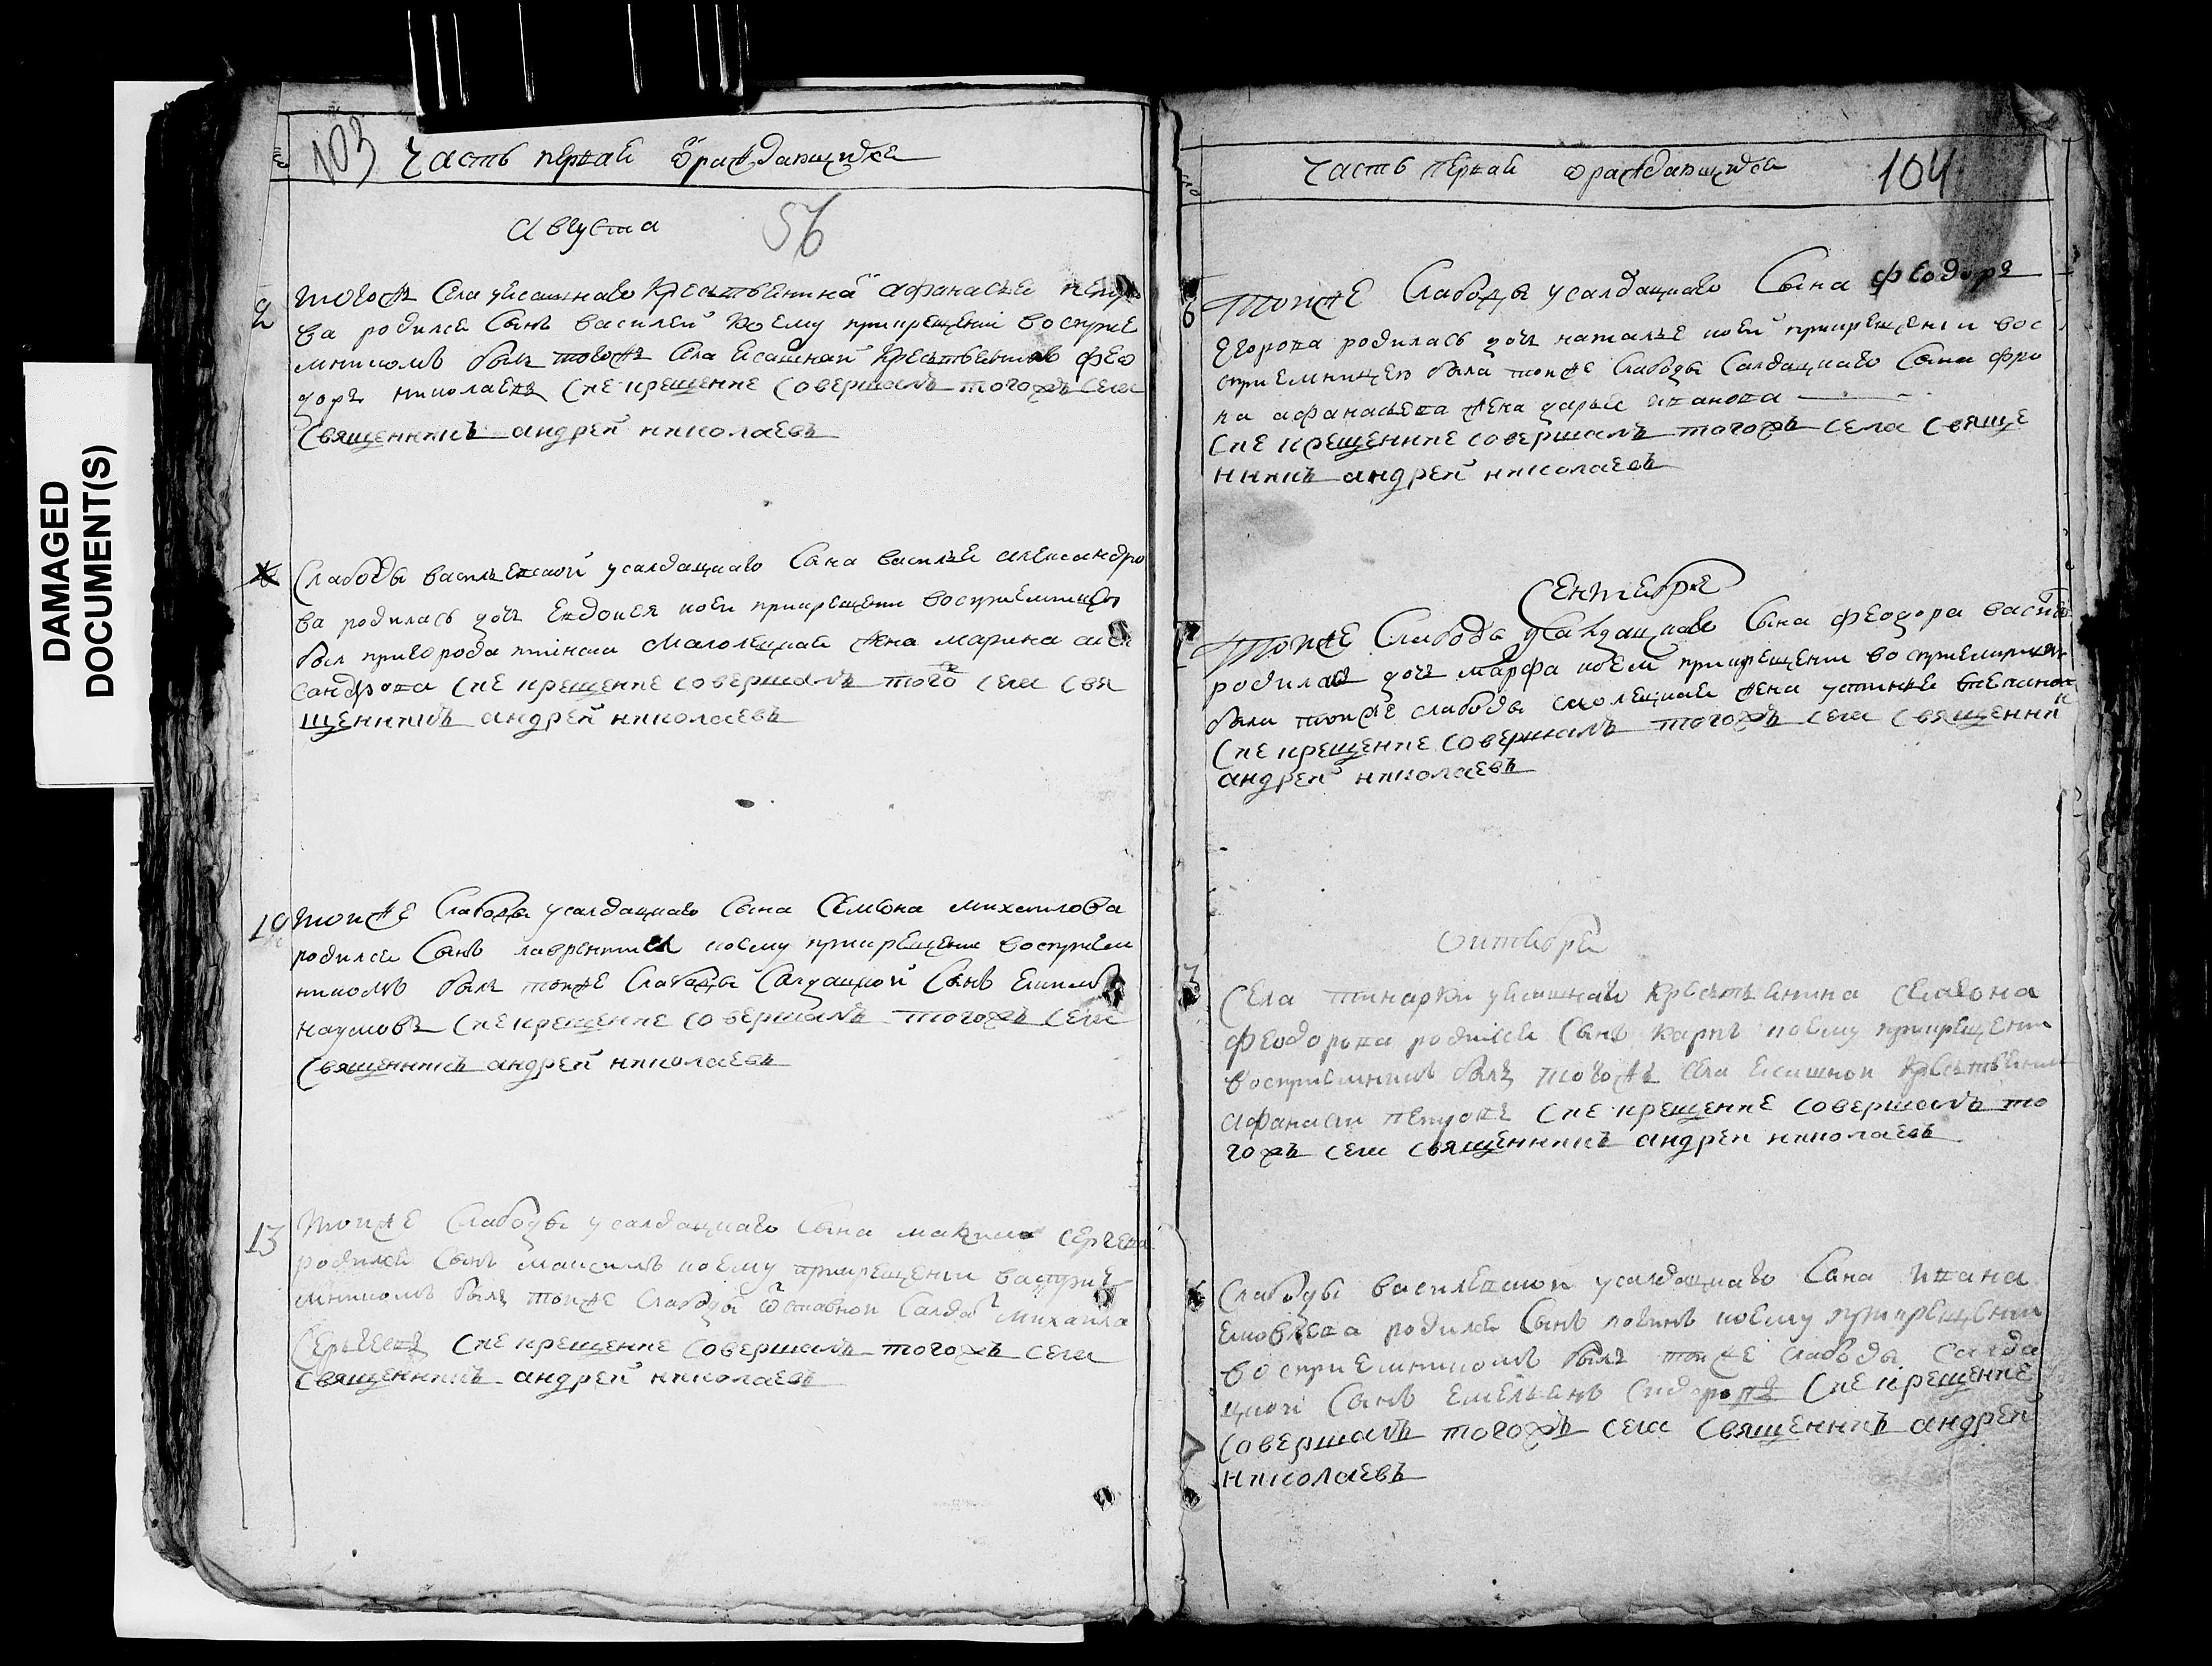 DAMAGED
DOCUMENT(S)
103 Часть первая ѡраждающихся
Августа 56
2 тогожъ села уясашнаго крестьянина афанасья петро
ва родился сынъ василей коему прикрещеніи восприе
мникомъ былъ тогожъ села ясашной крестьянинъ фео
доръ николаевъ Сие крещение совершалъ тогожъ села
священникъ андрей николаевъ
Слабоды васильевской усалдацкаго сына василья александро
ва родилась дочь Евдокея коеи прикрещени восприемницею
был пригорода жена марина алек
сандрова Сие крещение совершалъ того села свя
щенникъ андрей николаевъ
10 тойже слабоды усалдацкаго сына семиона михаилова
родился сынъ лаврентия коему прикрещение восприем
никомъ былъ тойже слабоды салдацкой сынъ
наумовъ Сие крещение совершалъ тогожъ села
священникъ андрей николаевъ
13 тойже слабоды усалдацкаго сына максима сергева
родился сынъ максимъ коему прикрещении васприе
мникомъ былъ тойже слабоды ѿставной салдат михаила
Сергеевъ Сие крещение совершалъ тогожъ села
священникъ андрей николаевъ
Часть первая ѡраждающихся 104
6 тойже Слабоды усалдацкаго Сына феодора
Егорова родилась дочь наталье коей прикрещении вос
приемницею была тойже слабоды салдацкаго сына фро
ла афанасьева жена дарья иванова
Сие крещенние совершалъ тогожъ села свяще
нникъ андрей николаевъ
Сентебря
тойже Слабоды усалдацкаго сына феодора
родилась дочь марфа коей прикрещении восприемницею
была тойже слабоды жена устинья
Сие крещение совершалъ тогожъ села священни
андрей николаевъ
Октября
Села тинарки уясашнаго крестьянина семиона
феодорова родился сынъ карпъ коему прикрещени
восприемникъ былъ тогожъ села ясашной крестьянин
афанасии петровъ Сие крещение совершалъ то
гожъ села священникъ андрей николаевъ
Слабоды василевской усалдацкаго Сына ивана
родился сынъ логинъ коему прикрещении
восприемникомъ былъ тойже слабоды салда
цкой сынъ емельянъ сидоровъ Сие крещение
совершалъ тогожъ села священникъ андрей
николаевъ